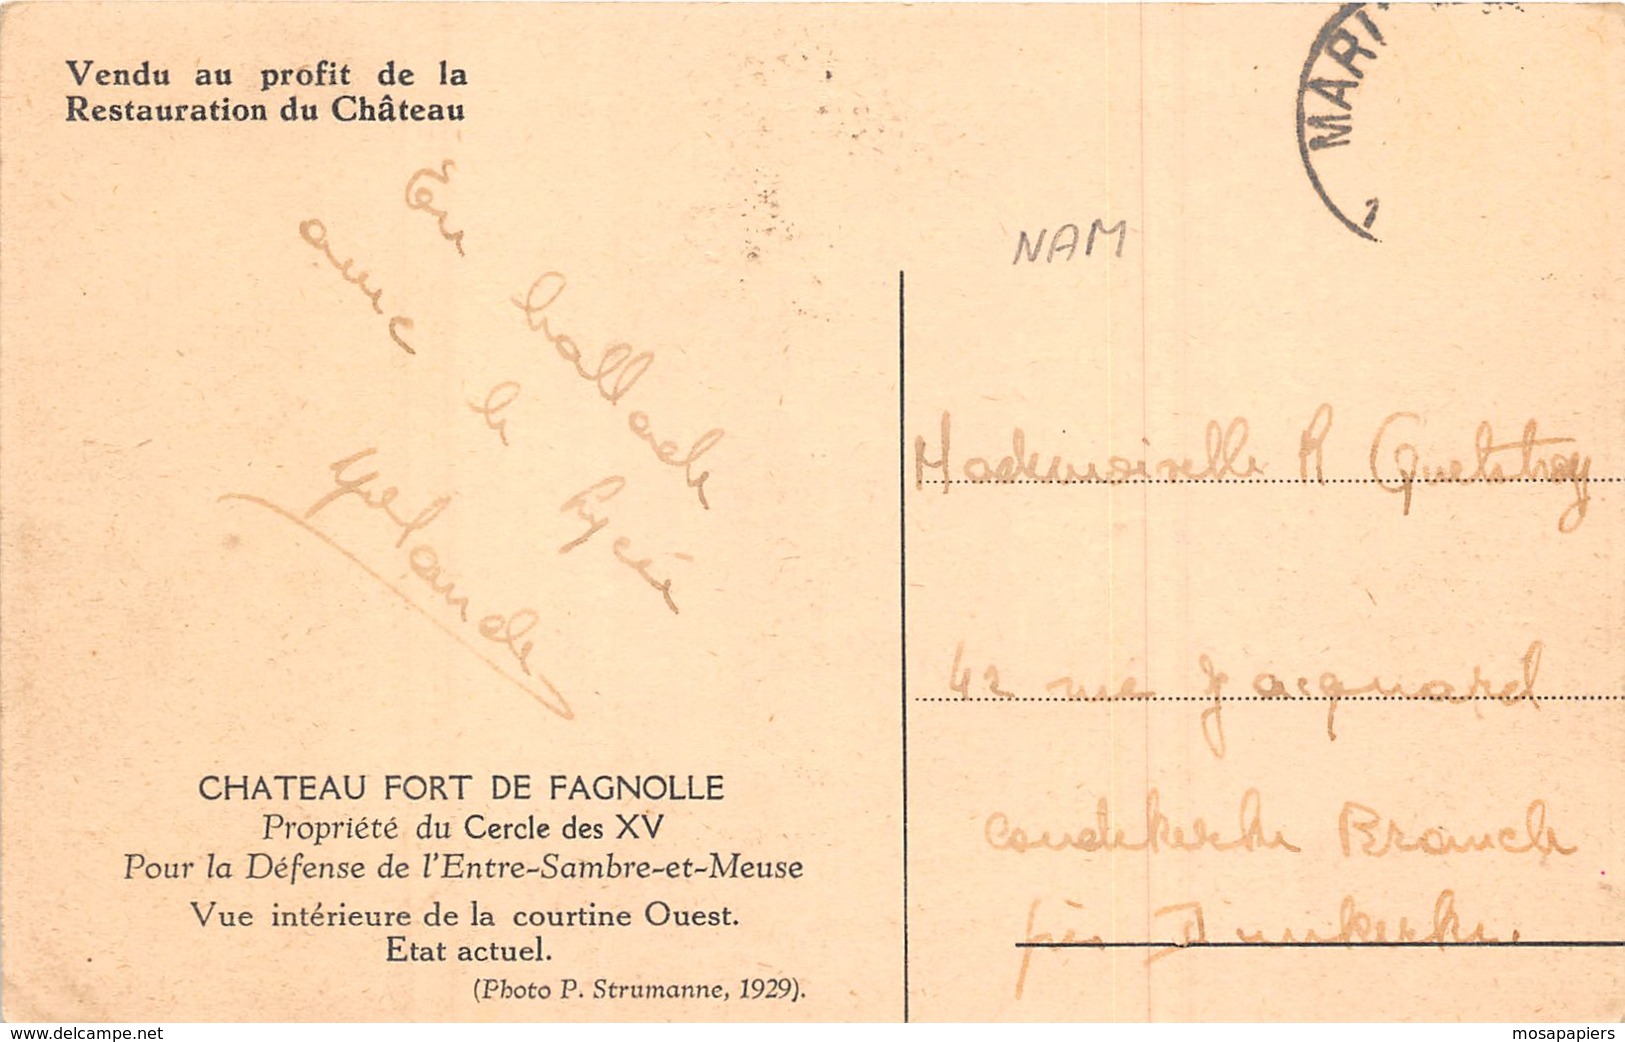 Vendu au profit de la
Restauration du Château
MARI
1
NAM
En ballade
avec le lycée
Yolande
Mademoiselle R
42 rue Jacquard
Coudekerke Branche
près Dunkerke.
CHATEAU FORT DE FAGNOLLE
Propriété du Cercle des XV
Pour la Défense de l'Entre-Sambre-et-Meuse
Vue intérieure de la courtine Ouest.
Etat actuel.
(Photo P. Strumanne, 1929).
www.delcampe.net
mosapapiers